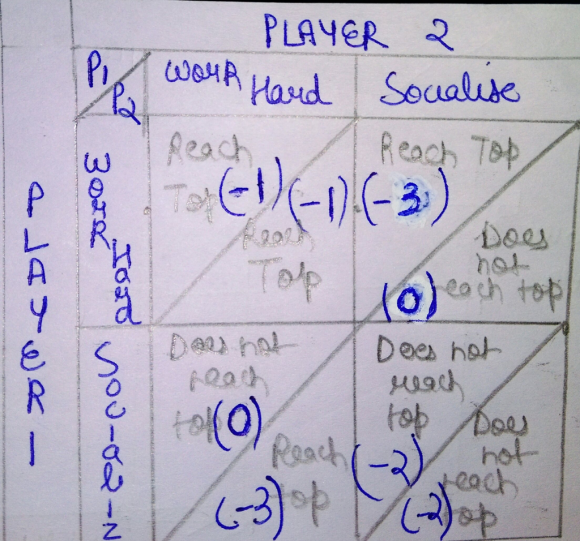 PLAYER 2
P1
P2
WORK Hard
Socialise
PLAYER 1
WORK Hard
Reach
Top (-1)
(-1)
Reach
Top
Reach Top
(-3)
Does
not
reach top
(0)
SOCIALIZ
Does not
reach
top (0)
Reach
top
(-3)
Does not
reach
top
(-2)
Does
not
reach
top
(-2)